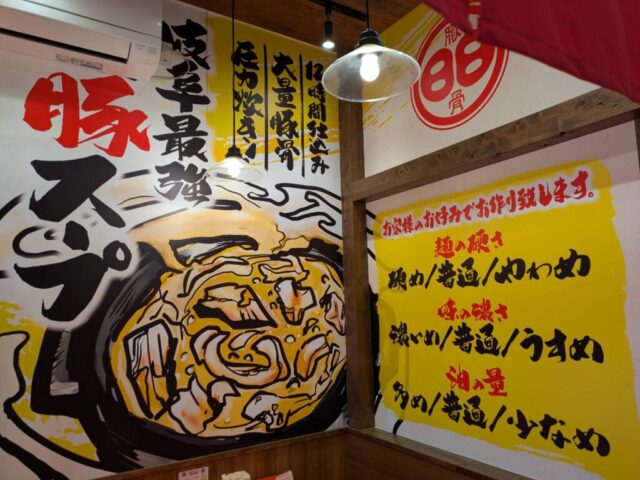 岐阜最強
豚スープ
12時間仕込み
大量豚骨
圧力炊き!
豚
88
骨
お客様のお好みでお作り致します。
麺の硬さ
硬め/普通/やわめ
味の濃さ
濃いめ/普通/うすめ
油の量
多め/普通/少なめ